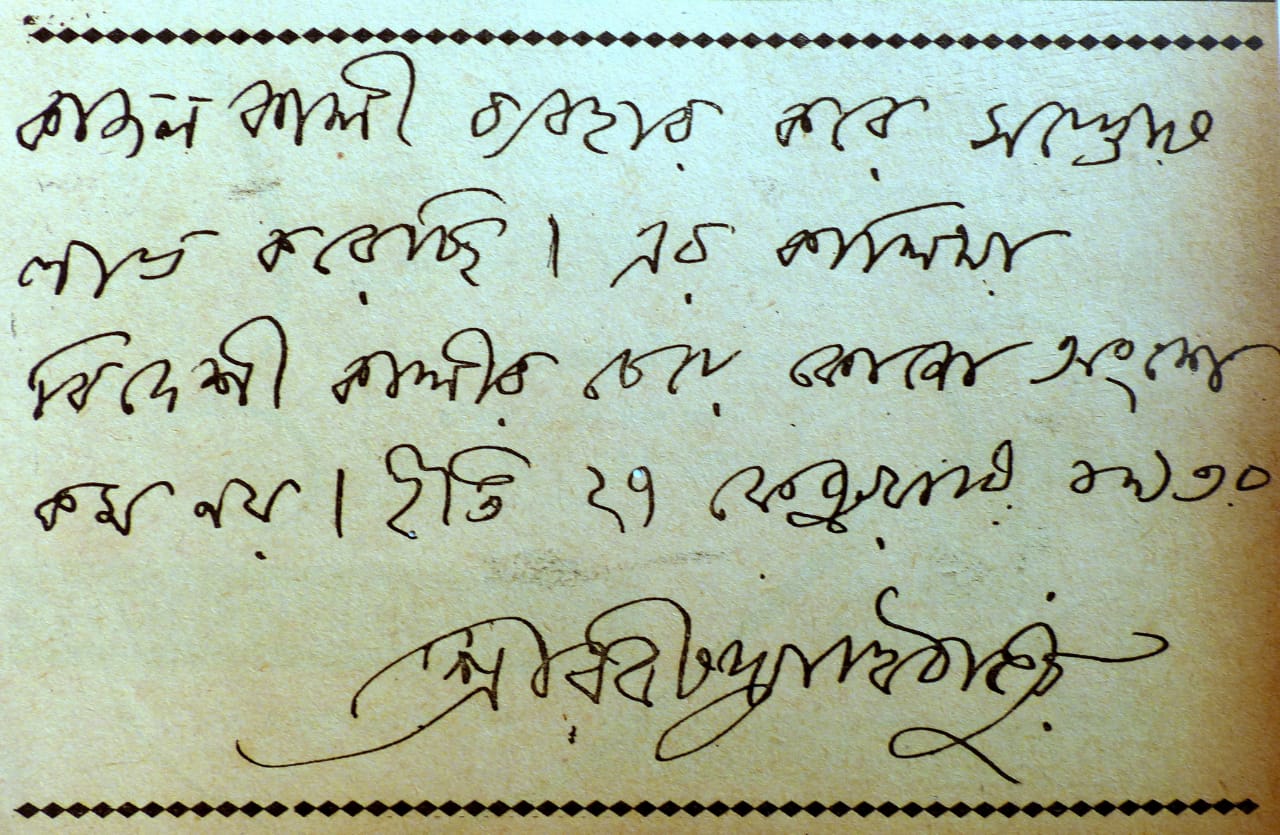 কাজল কালী ব্যবহার করে সন্তোষ
লাভ করেছি। এর কালিমা
বিদেশী কালীর চেয়ে কোনো অংশে
কম নয়। ইতি ২৭ ফেব্রুয়ারি ১৯৩৫
শ্রীরবীন্দ্রনাথ ঠাকুর